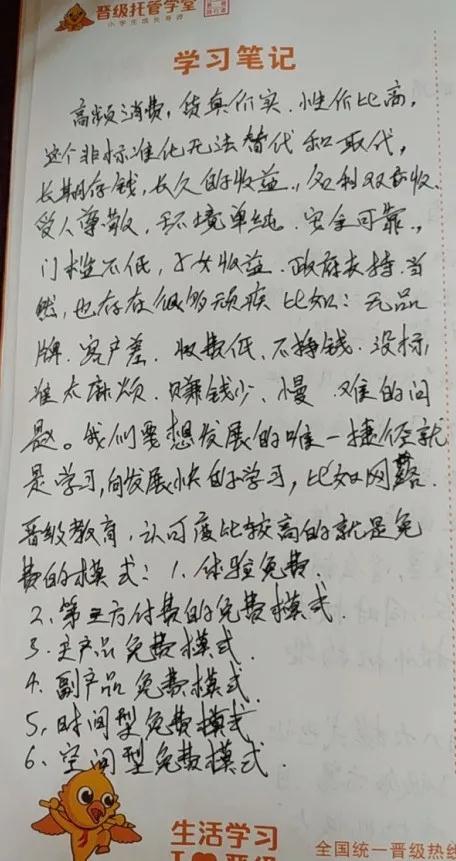 晋级托管学堂
小学生成长导师
学习笔记
高频消费,货真价实.性价比高,
这个非标准化无法替代和取代,
长期存钱,长久的收益.,名利双丰收.
受人尊敬,环境单纯.安全可靠.,
门槛不低,子女收益.政府支持.当
然,也存在很多顽疾 比如:无品
牌.客户差.收费低、不挣钱.没标
准太麻烦.赚钱少、慢 难的问
题。我们要想发展的唯一捷径就
是学习,向发展快的学习,比如网路.
晋级教育,认可度比较高的就是免
费的模式:1.体验免费.
2.第三方付费的免费模式.
3.主产品免费模式.
4.副产品免费模式.
5,时间型免费模式
6、空间型免费模式.
生活学习
I 晋级
全国统一晋级热线